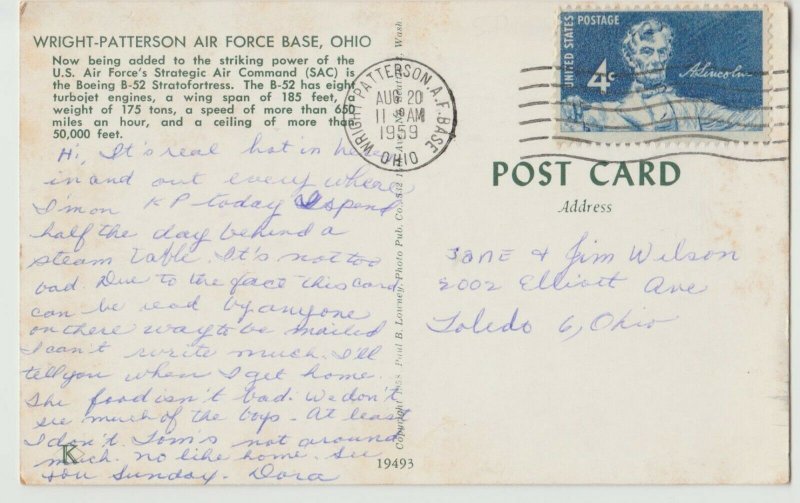 WRIGHT-PATTERSON AIR FORCE BASE, OHIO
Now being added to the striking power of the
U.S. Air Force's Strategic Air Command (SAC) is
the Boeing B-52 Stratofortress. The B-52 has eight
turbojet engines, a wing span of 185 feet, a
weight of 175 tons, a speed of more than 650
miles an hour, and a ceiling of more than
50,000 feet.
Hi, It's real hot in here
in and out every where,
I'm on KP today I spend
half the day behind a
steam table. It's not too
bad. Due to the face this card
can be read by anyone
on there way to be mailed
I can't write much. I'll
tell you when I get home.
The food isn't bad. We don't
see much of the boys. At least
I don't. Tom's not around
much. no like home. See
you Sunday. Dora
K
Copyright 1958 - Paul B. Lowney, Photo Pub. Co., Seattle, Wash
19493
WRIGHT-PATTERSON A.F. BASE
AUG 20
11 AM
1959
OHIO
UNITED STATES POSTAGE
4¢
A. Lincoln
POST CARD
Address
Jane & Jim Wilson
2002 Elliott Ave
Toledo 6, Ohio